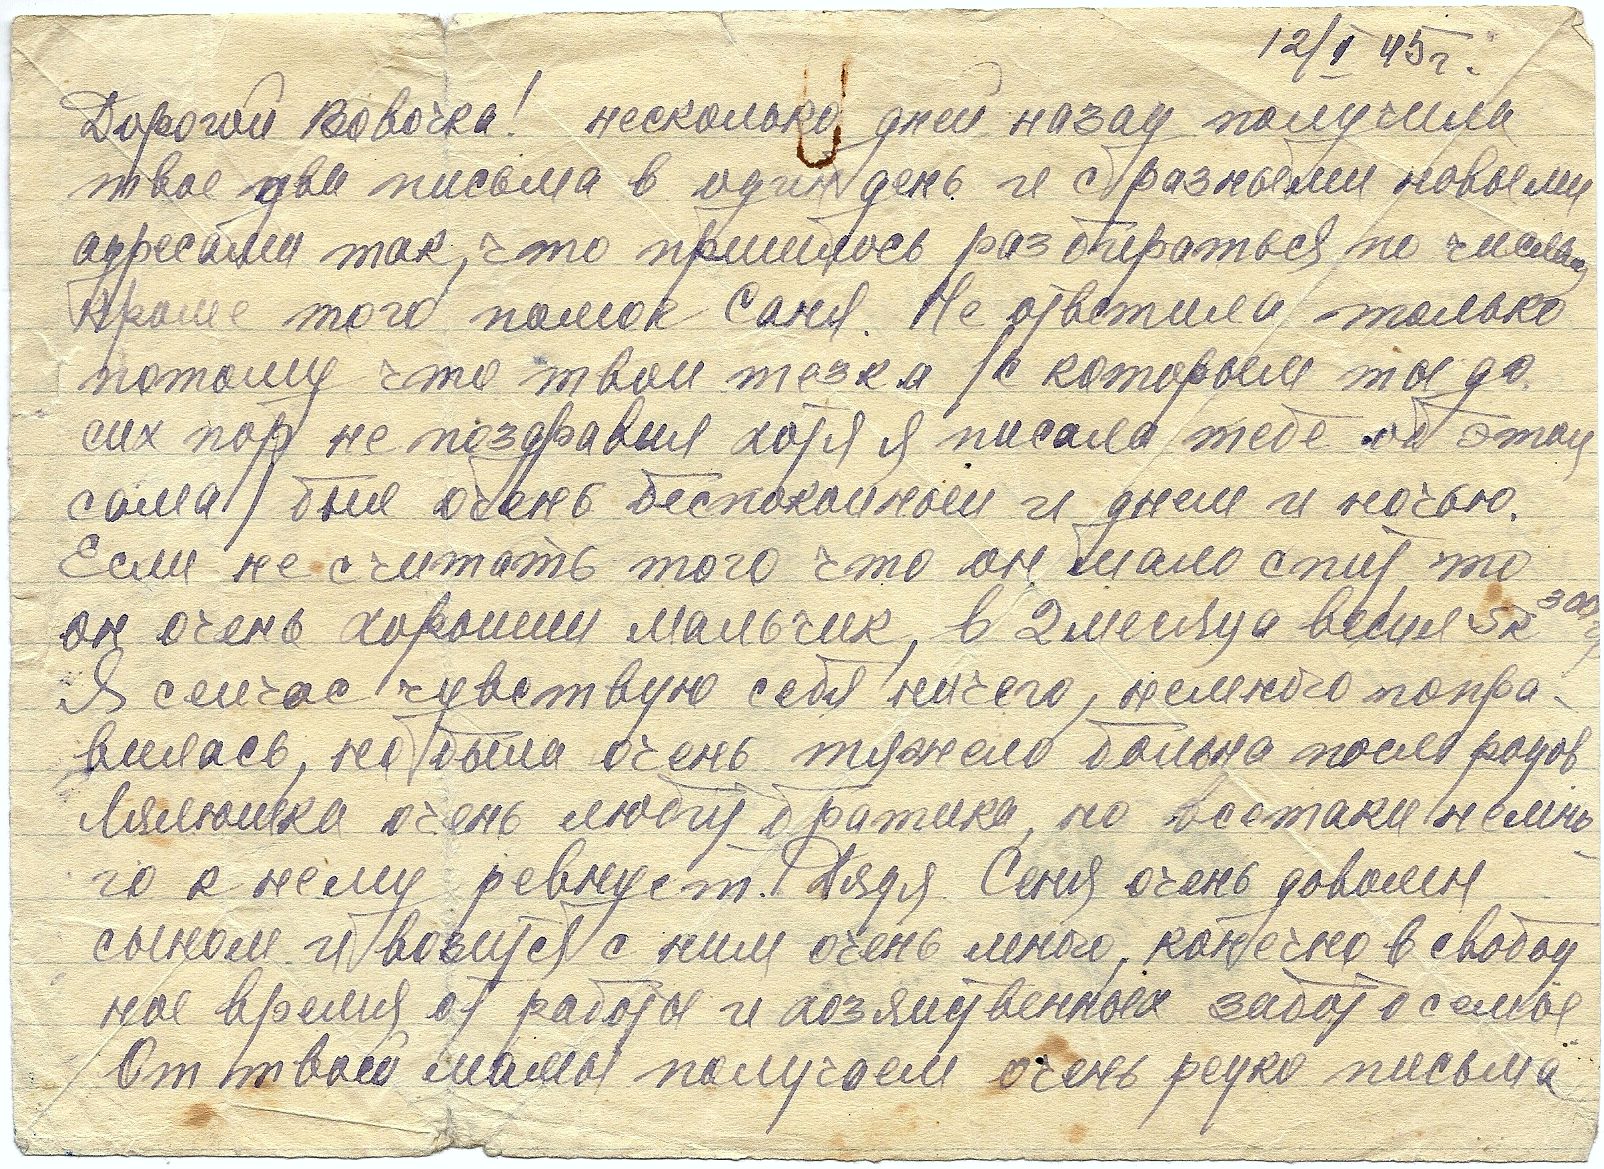 12/I 45 г.
Дорогой Вовочка! несколько дней назад получила
твое два письма в один день и с разными новыми
адресами так, что пришлось разбираться по числам
Кроме того помог Саня. Не ответила только
потому что твой тезка /с которым ты до
сих пор не поздравил хотя я писала тебе об этом
сама/ был очень беспокойным и днем и ночью.
Если не считать того что он мало спит, то
он очень хороший мальчик, в 2 месяца весил 5к 300 гр
Я сейчас чувствую себя ничего, немного попра-
вилась, но была очень тяжело больна после родов
Лялюшка очень любит братика, но всетаки немно-
го к нему ревнует. Дядя Сеня очень доволен
сыном и возится с ним очень много, конечно в свобод
ное время от работы и хозяйственных забот о семье
От твоей мамы получаем очень редко письма